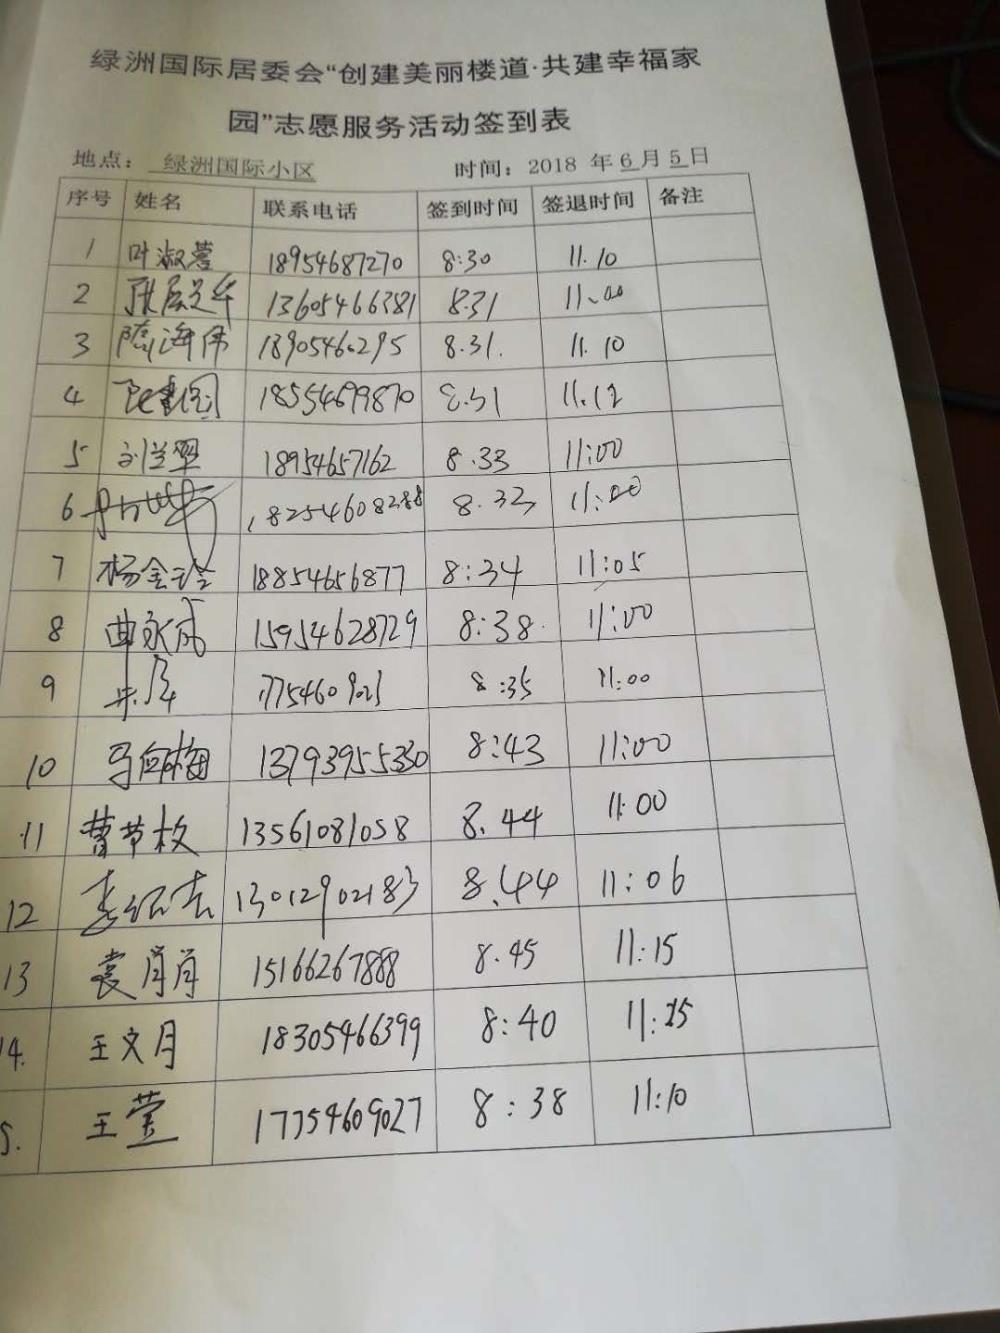 绿洲国际居委会“创建美丽楼道·共建幸福家
园”志愿服务活动签到表
地点： 绿洲国际小区 时间：2018 年 6 月 5 日
序号 姓名 联系电话 签到时间 签退时间 备注
1 叶淑莹 18954687270 8:30 11.10
2 13605466381 8.31 11.00
3 隋海伟 1890546295 8.31. 11.10
4 18554679870 8.31 11.12
5 刘兰翠 18954657162 8.33 11:00
6 18254608288 8.32 11:00
7 杨金玲 18854656877 8:34 11:05
8 曲永成 15954628729 8:38 11:00
9 8:35 11:00
10 马向梅 13793955330 8:43 11:00
11 曹节枚 13561081058 8.44 11:00
12 13012902183 8.44 11:06
13 袁肖肖 15166267888 8.45 11:15
14. 王文月 18305466399 8:40 11:25
5. 王莹 17754609027 8:38 11:10